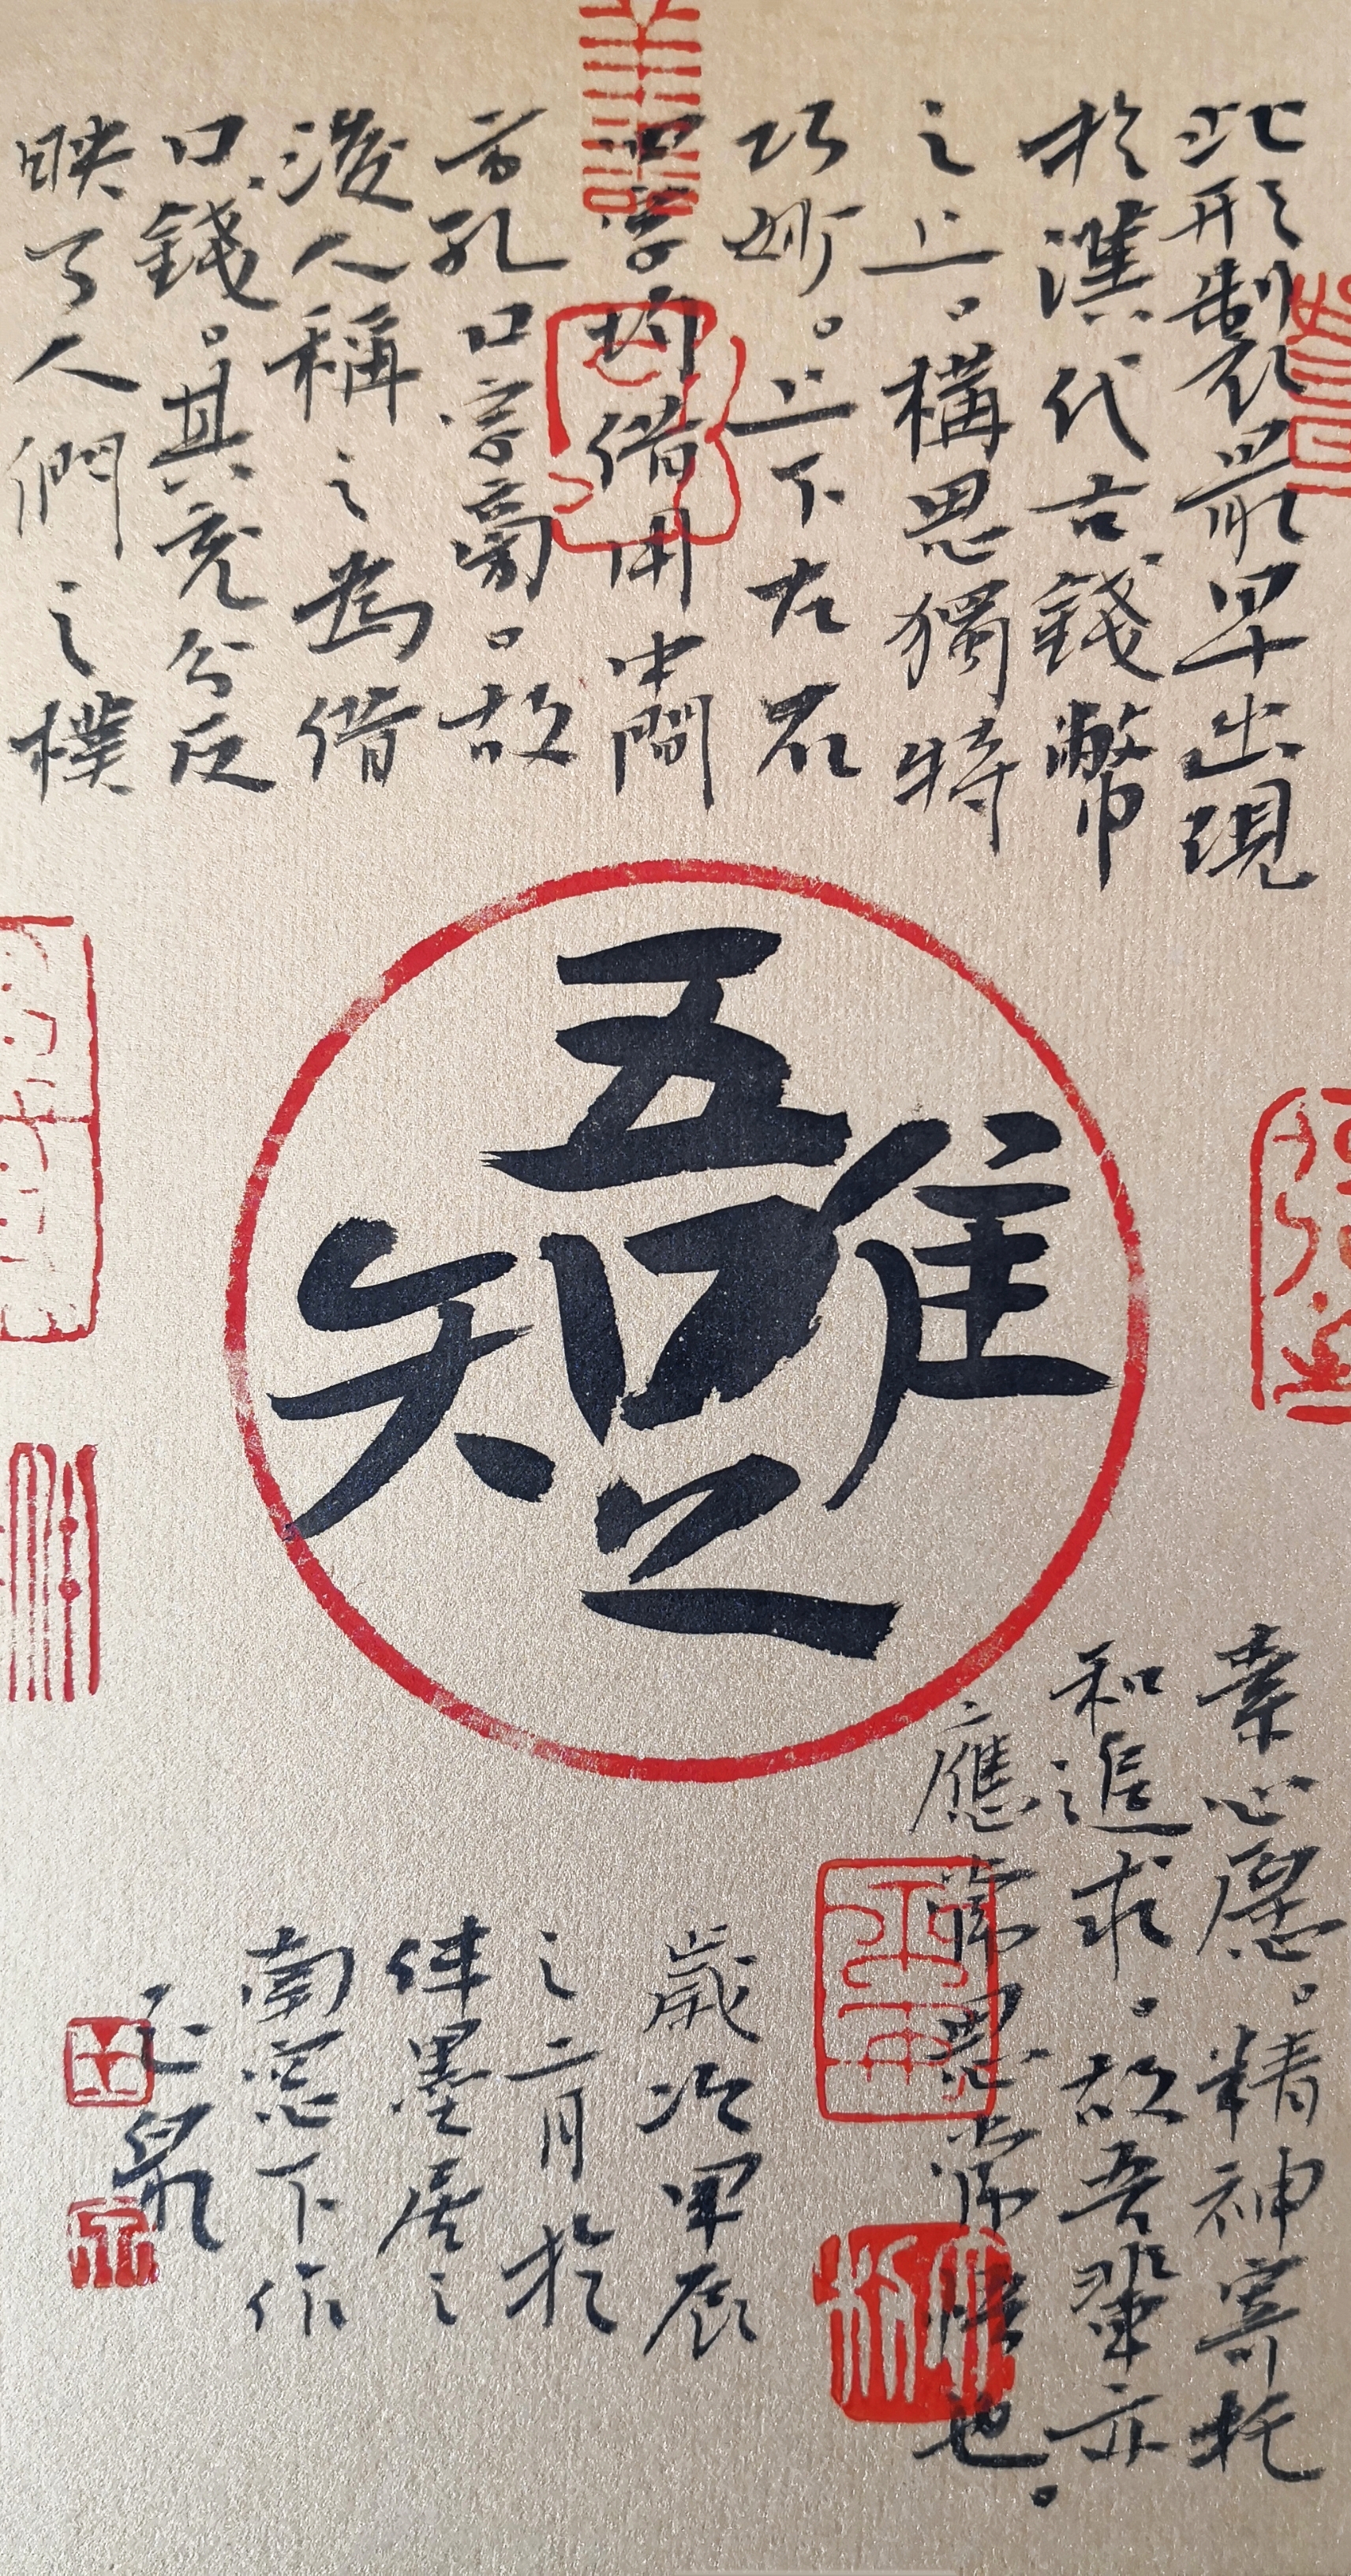 此形製最早出現
於漢代古錢幣
之上。構思獨特
巧妙。上下左右
四字均借用中間
方孔口字焉。故
後人稱之為借
口錢。其充分反
映了人們之樸
吾唯知足
素心愿。精神寄托
和追求。故吾輩亦
應常思常悟也。
歲次甲辰
之二月於
伴墨居之
南窗下作
泉